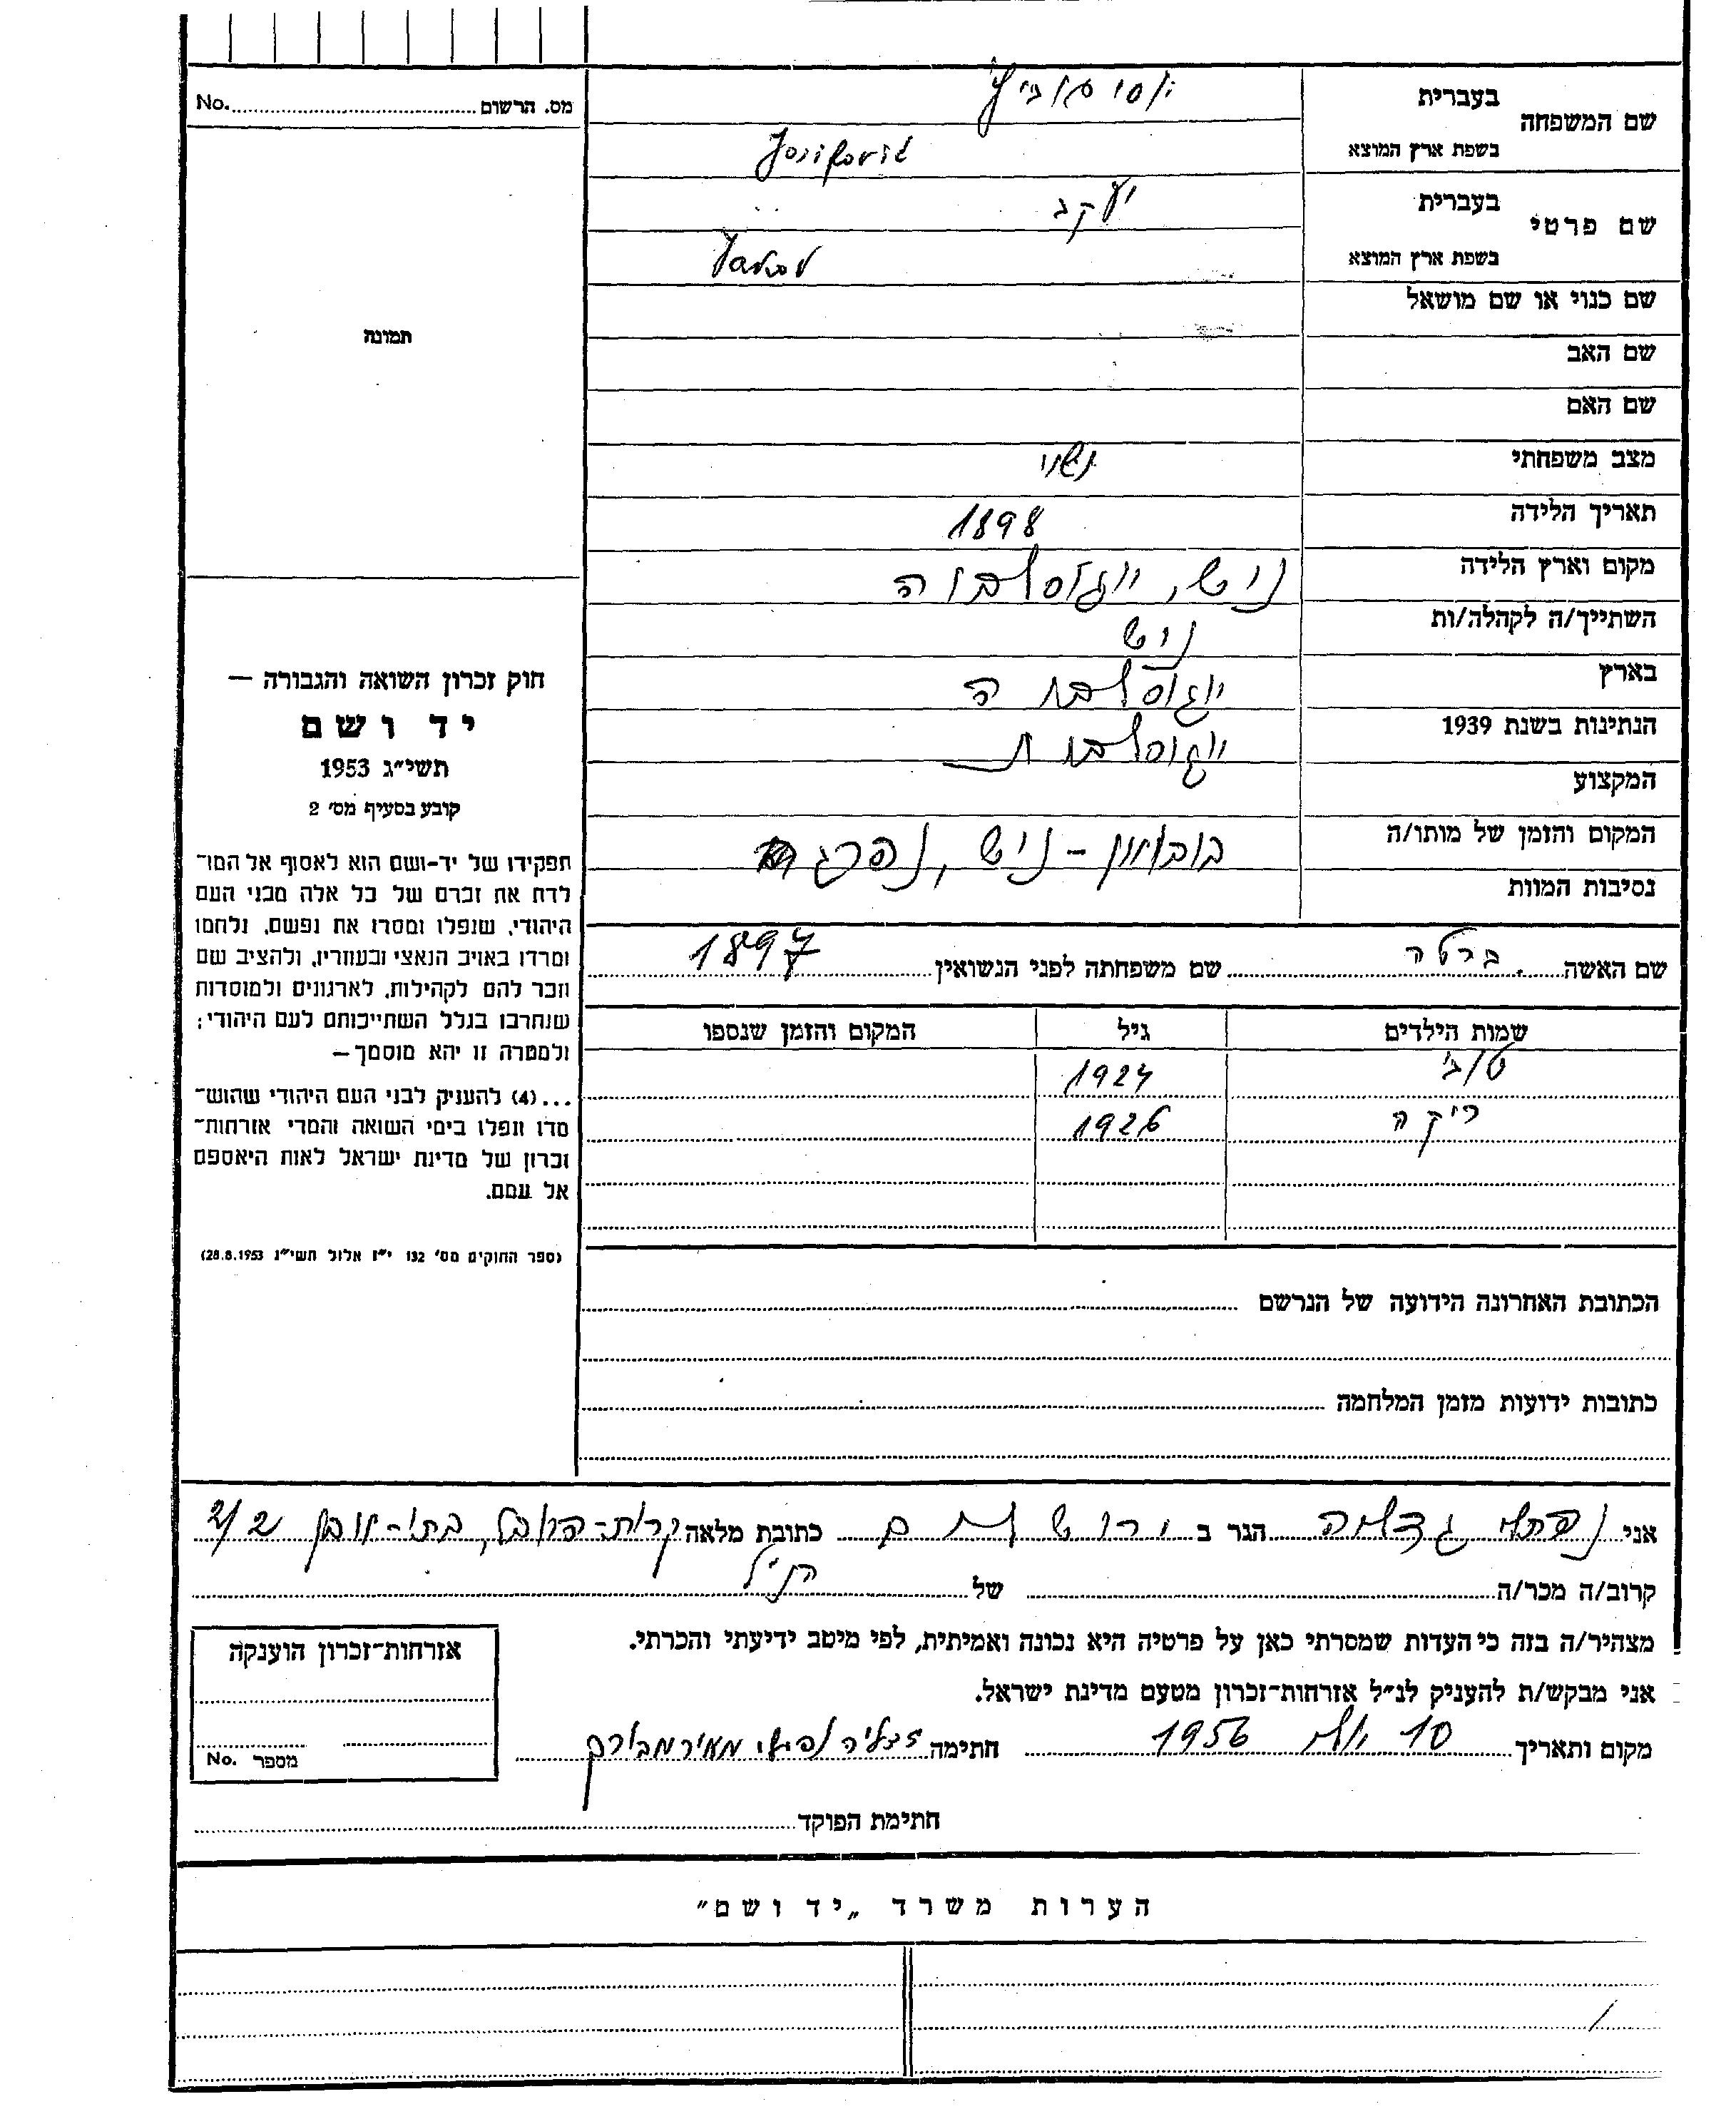 מס. הרשום No.
תמונה
חוק זכרון השואה והגבורה —
יד ושם
תשי״ג 1953
קובע בסעיף מס׳ 2
תפקידו של יד-ושם הוא לאסוף אל המו־
לדת את זכרם של כל אלה מבני העם
היהודי, שנפלו ומסרו את נפשם, נלחמו
ומרדו באויב הנאצי ובעוזריו, ולהציב שם
וזכר להם לקהילות, לארגונים ולמוסדות
שנחרבו בגלל השתייכותם לעם היהודי;
ולמטרה זו יהא מוסמך—
...(4) להעניק לבני העם היהודי שהוש־
מדו ונפלו בימי השואה והמרי אזרחות־
זכרון של מדינת ישראל לאות היאספם
אל עמם.
(ספר החוקים מס׳ 132 י״ז אלול תשי״ג 28.8.1953)
שם המשפחה בעברית יוסיפוביץ
בשפת ארץ המוצא Josipović
שם פרטי בעברית יעקב
בשפת ארץ המוצא
שם כנוי או שם מושאל
שם האב
שם האם
מצב משפחתי נשוי
תאריך הלידה 1898
מקום וארץ הלידה ניש, יוגוסלביה
השתייך/ה לקהלה/ות ניש
בארץ יוגוסלביה
הנתינות בשנת 1939 יוגוסלבית
המקצוע
המקום והזמן של מותו/ה בובאין - ניש, נהרג
נסיבות המוות
שם האשה ברטה שם משפחתה לפני הנשואין 1897
שמות הילדים גיל המקום והזמן שנספו
1924
ריקה 1926
הכתובת האחרונה הידועה של הנרשם
כתובות ידועות מזמן המלחמה
אני נפתלי גדליה הגר ב ירושלים כתובת מלאה קרית-היובל, בתי-
קרוב/ה מכר/ה של הנ״ל
מצהיר/ה בזה כי העדות שמסרתי כאן על פרטיה היא נכונה ואמיתית, לפי מיטב ידיעתי והכרתי.
אני מבקש/ת להעניק לנ״ל אזרחות־זכרון מטעם מדינת ישראל.
מקום ותאריך 10 יולי 1956 חתימה
אזרחות־זכרון הוענקה
מספר No.
חתימת הפוקד
הערות משרד „יד ושם״